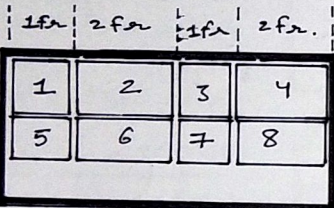 1fr 2fr 1fr 2fr.
1 2 3 4
5 6 7 8